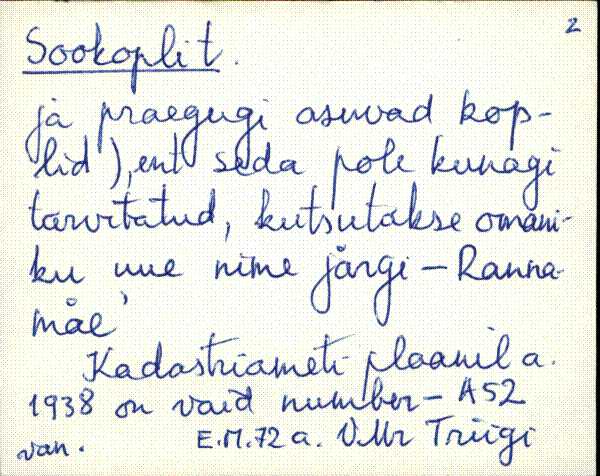 2
Sookoplit.
ja praegugi asuvad kop-
lid), ent seda pole kunagi
tarvitatud, kutsutakse omani-
ku uue nime järgi – Ranna-
mäe
Kadastriameti plaanil a.
1938 on vaid number – A52
van. E.M. 72 a. V. Mr Triigi